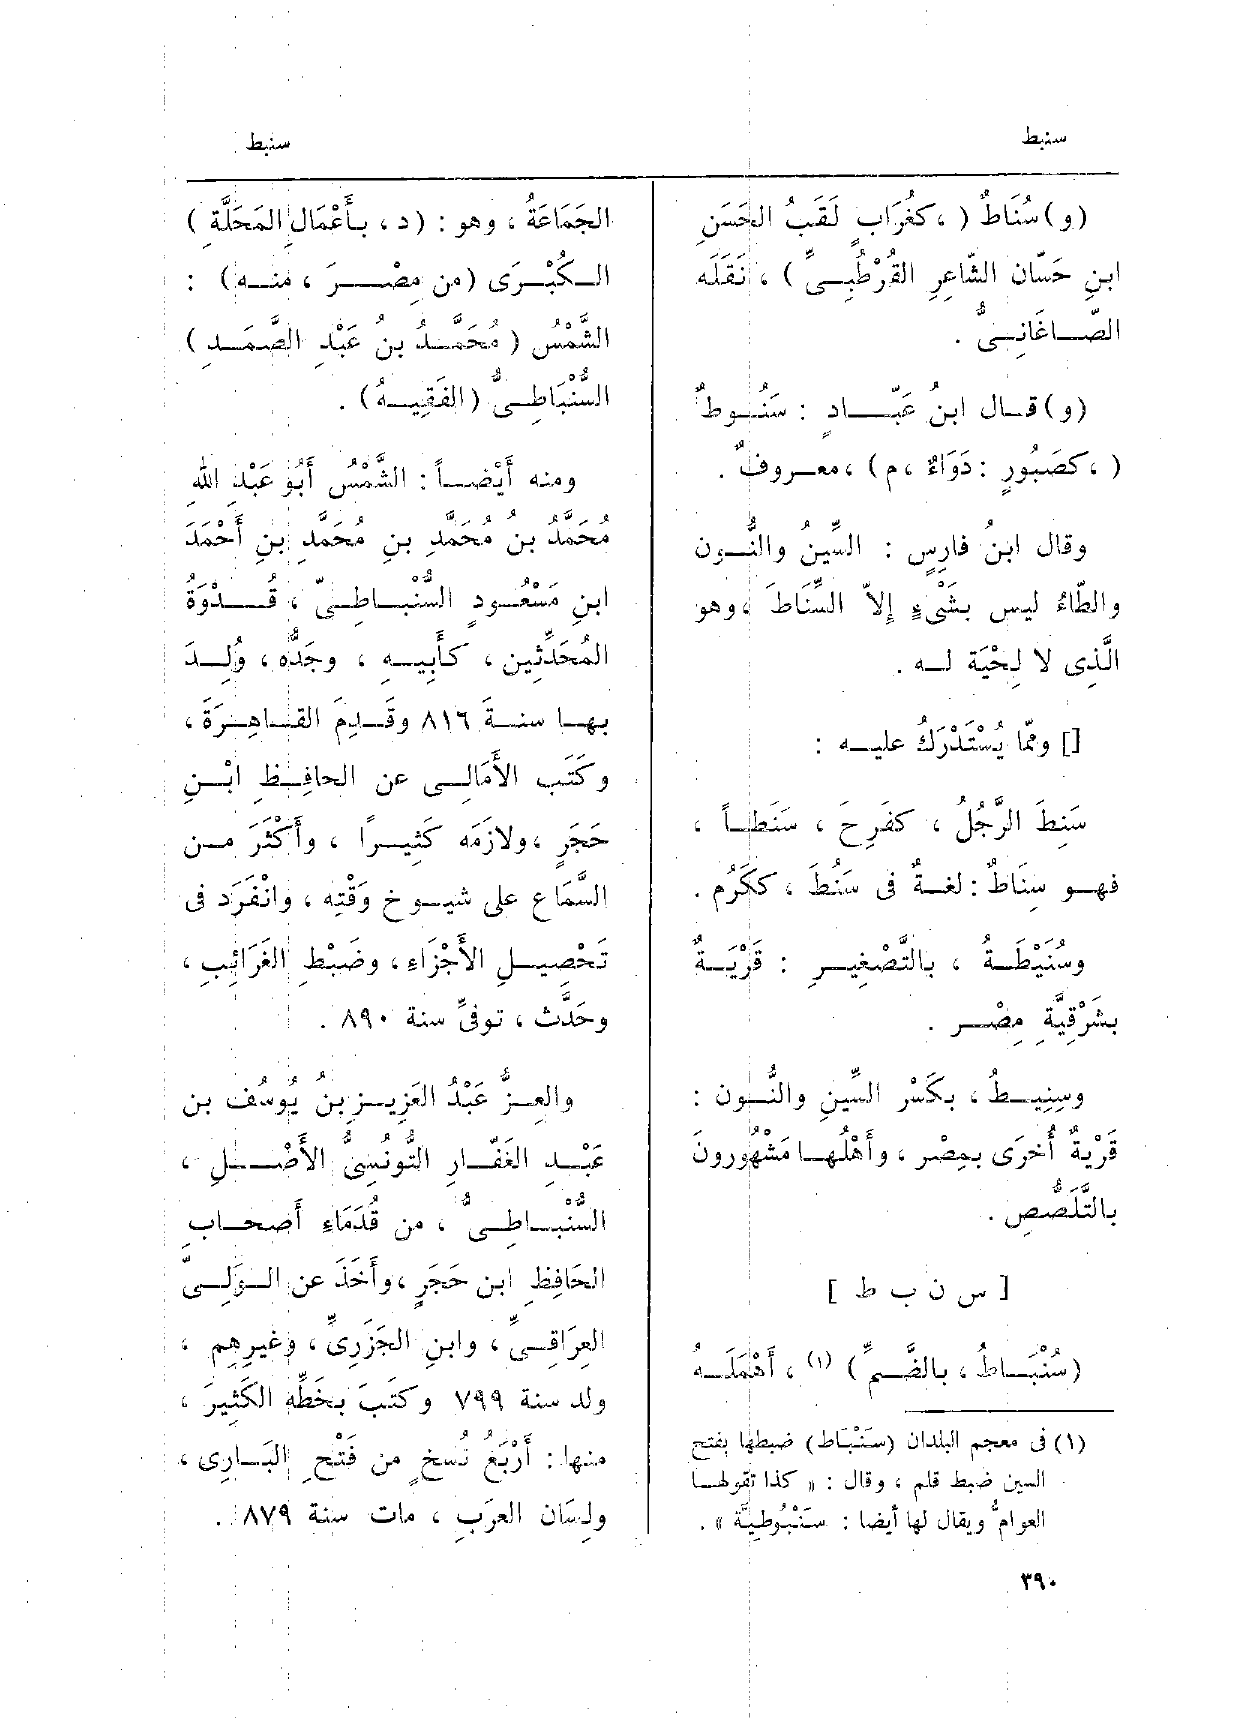 سنبط
سنبط
(و) سُنَاطٌ (، كغُرَابٍ لَقَبُ الحَسَنِ
ابنِ حَسّان الشّاعِرِ القُرْطُبِىِّ) ، نَقَلَه
الصّاغَانِىُّ .
(و) قال ابنُ عَبّادٍ : سَنُوطٌ
(، كصَبُورٍ : دَوَاءٌ ، م) ، معروفٌ .
وقال ابنُ فارِسٍ : السِّينُ والنُّون
والطّاءُ ليس بشَىْءٍ إِلاّ السِّنَاطَ ، وهو
الَّذِى لا لِحْيَة له .
[] وممّا يُسْتَدْرَكُ عليه :
سَنِطَ الرَّجُلُ ، كفَرِحَ ، سَنَطاً ،
فهو سِنَاطٌ : لغةٌ فى سَنُطَ ، ككَرُم .
وسُنَيْطَةُ ، بالتَّصْغِيرِ : قَرْيَةٌ
بشَرْقِيَّةِ مِصْرِ .
وسِنِيطُ ، بكَسْر السِّينِ والنُّون :
قَرْيةٌ أُخرَى بمِصْر ، وأَهْلُها مَشْهُورونَ
بالتَّلَصُّصِ .
[ س ن ب ط ]
(سُنْبَاطُ ، بالضَّمِّ) (١) ، أَهْمَلَهُ
(١) فى معجم البلدان (سَنْبَاط) ضبطها بفتح
السين ضبط قلم ، وقال : « كذا تقولها
العوامُّ ويقال لها أيضا : سَنْبُوطِيَّة » .
الجَمَاعَةُ ، وهو : (د ، بأَعْمَالِ المَحَلَّةِ)
الكُبْرَى (من مِصْرَ ، منه) :
الشَّمْسُ (مُحَمَّدُ بنُ عَبْدِ الصَّمَدِ)
السُّنْبَاطِىُّ (الفَقِيهُ) .
ومنه أَيْضاً : الشَّمْسُ أَبُو عَبْدِ اللهِ
مُحَمَّدُ بنُ مُحَمَّدِ بنِ مُحَمَّدِ بنِ أَحْمَدَ
ابنِ مَسْعُودٍ السُّنْباطِىّ ، قُدْوَةُ
المُحَدِّثين ، كأَبِيهِ ، وجَدُّه ، وُلِدَ
بها سنةَ ٨١٦ وقَدِمَ القاهِرَةَ ،
وكَتَب الأَمَالِى عن الحافِظِ ابْنِ
حَجَرٍ ، ولازَمَه كَثِيرًا ، وأَكْثَرَ من
السَّمَاعِ على شيوخ وَقْتِه ، وانْفَرَد فى
تَحْصِيلِ الأَجْزَاءِ ، وضَبْطِ الغَرَائِبِ ،
وحَدَّث ، توفِّىَ سنة ٨٩٠ .
والعِزُّ عَبْدُ العَزِيزِ بنُ يُوسُف بن
عَبْدِ الغَفّارِ التُّونُسِىُّ الأَصْلِ ،
السُّنْبَاطِىُّ ، من قُدَمَاءِ أَصحابِ
الحَافِظِ ابن حَجَرٍ ، وأَخَذَ عن الوَلِىِّ
العِرَاقِىِّ ، وابنِ الجَزَرِىِّ ، وغيرِهِم ،
ولد سنة ٧٩٩ وكَتَبَ بخَطِّهِ الكَثِيرَ ،
منها : أَرْبَعُ نُسَخٍ من فَتْحِ البَارِى ،
ولِسَان العَرَبِ ، مات سنة ٨٧٩ .
٣٩٠